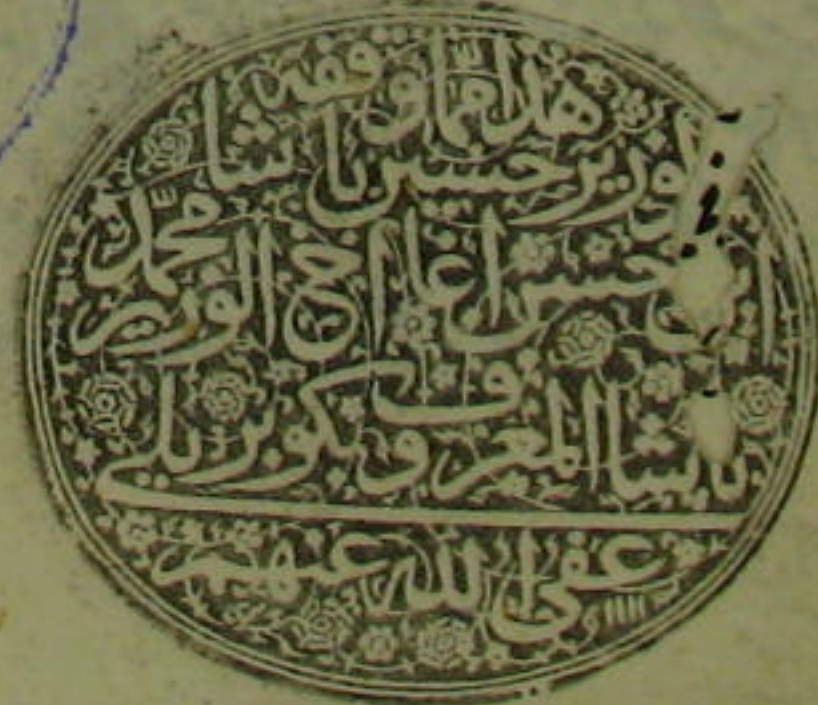 هذا ممّا وقفه
الوزير حسين باشا
ابن حسن اغا اخى الوزير محمّد
باشا المعروف بكوبريلى
عفى الله عنهم
١١١١